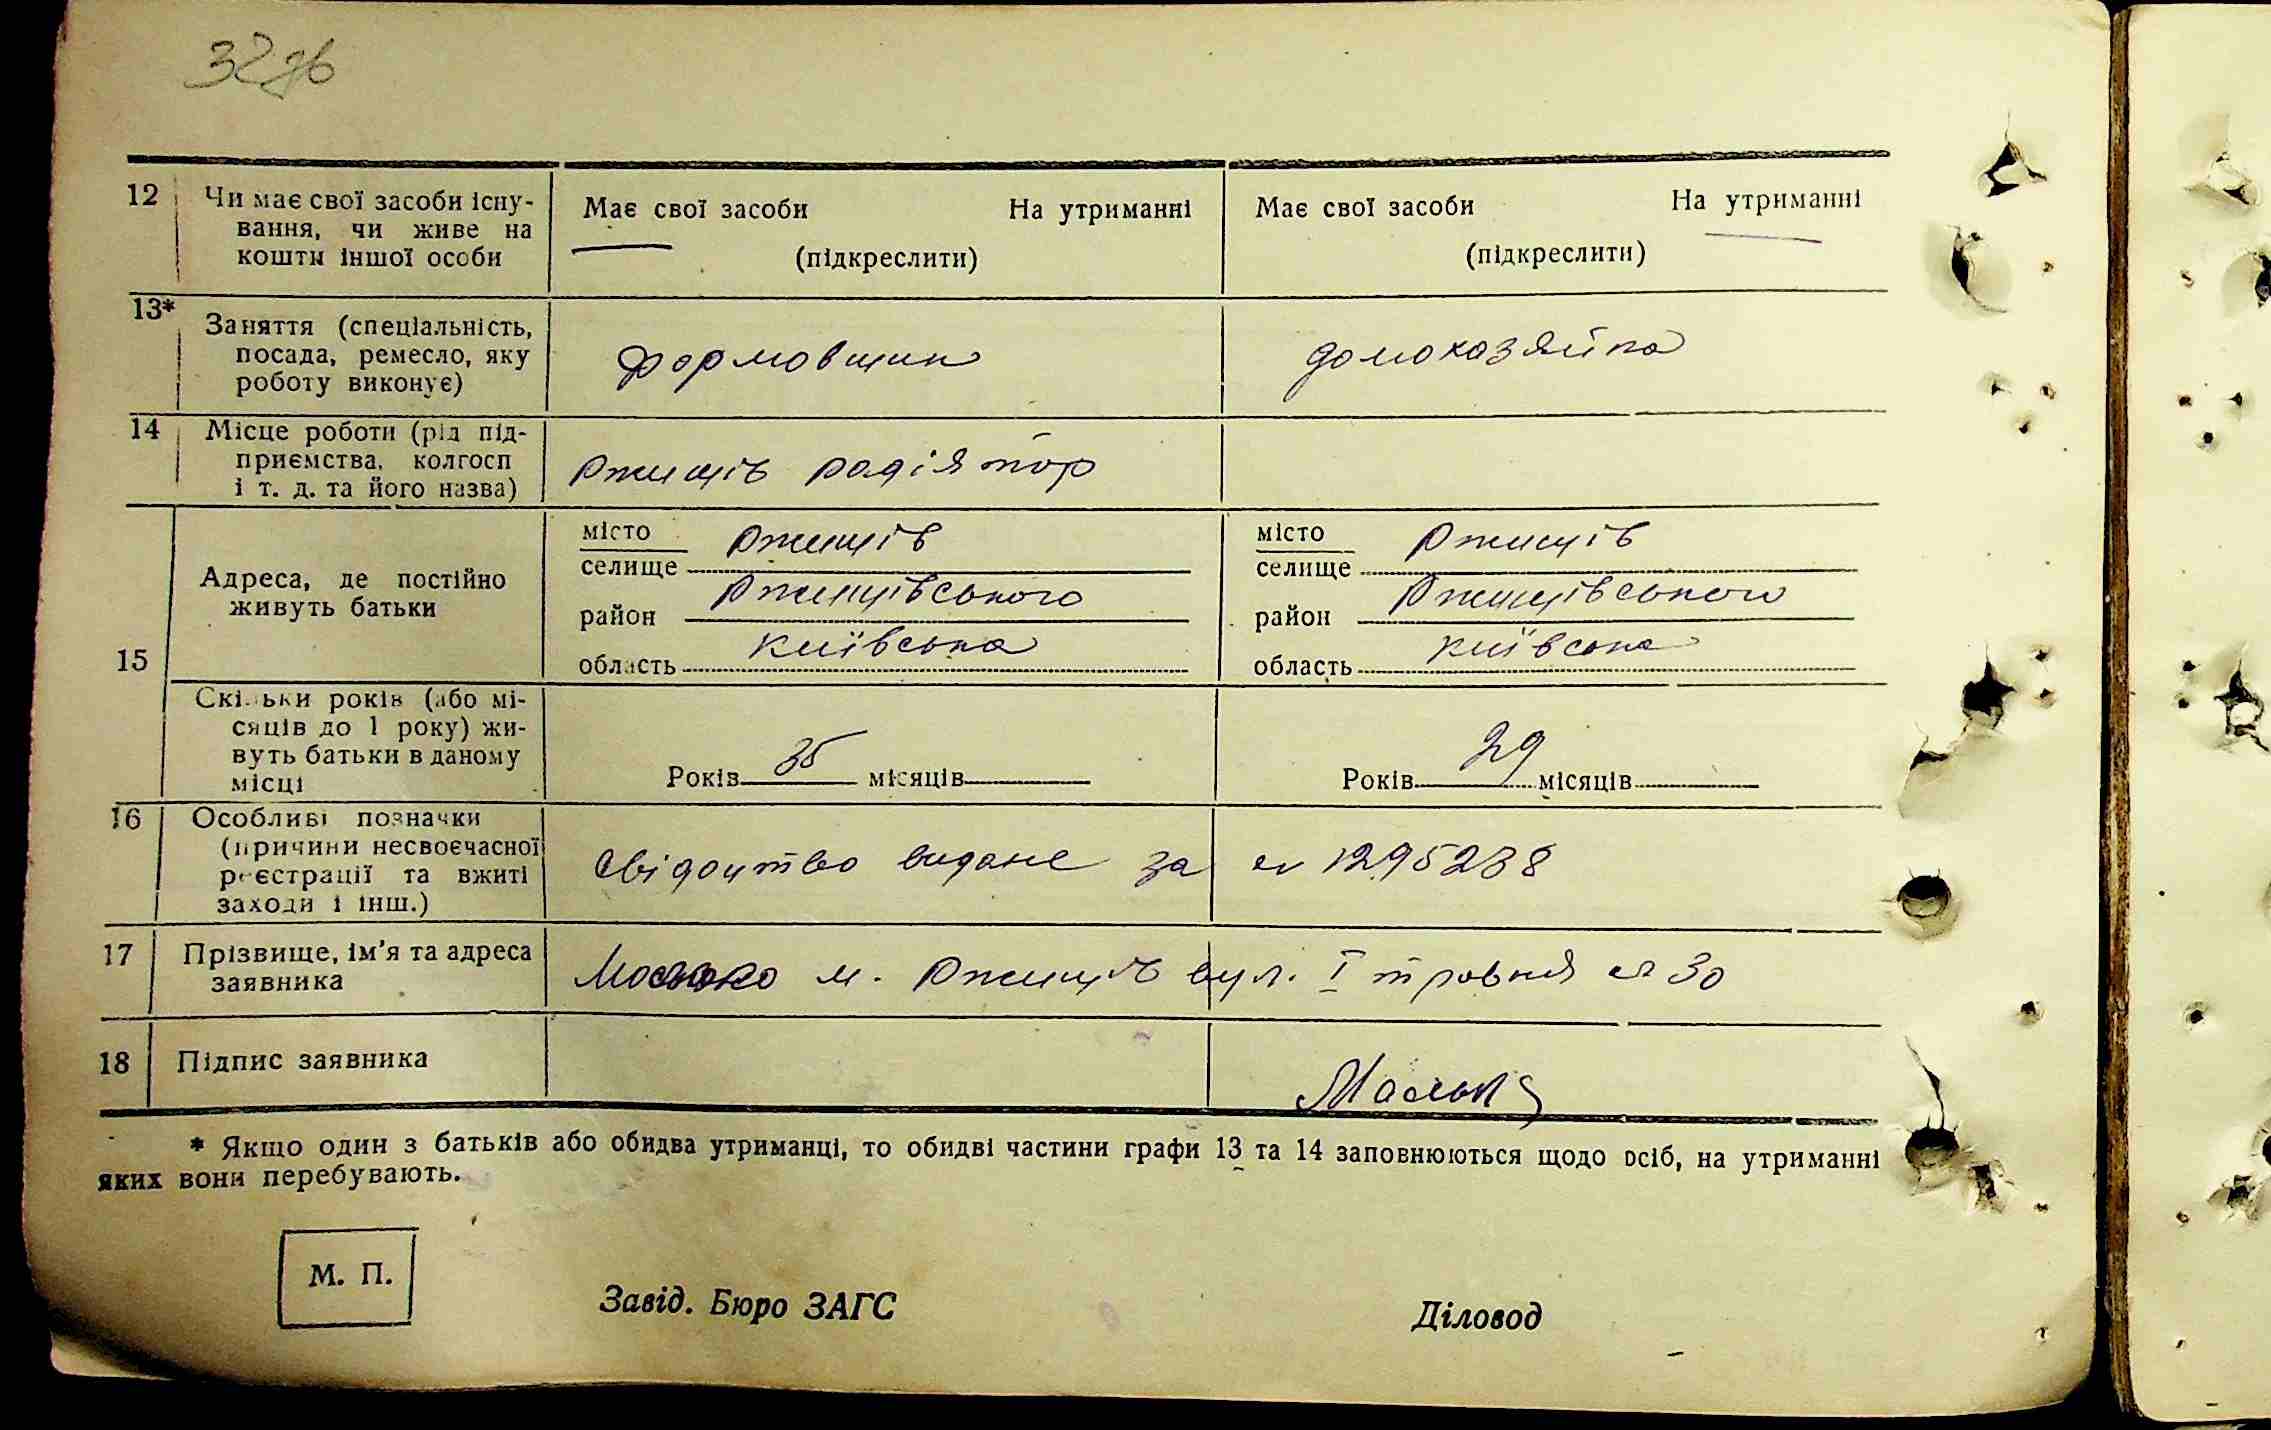 32зв
12 Чи має свої засоби існу- Має свої засоби На утриманні Має свої засоби На утриманні
вання, чи живе на
кошти іншої особи (підкреслити) (підкреслити)
13* Заняття (спеціальність,
посада, ремесло, яку формовщик домохазяйка
роботу виконує)
14 Місце роботи (рід під-
приємства, колгосп Ржищів радіятор
і т. д. та його назва)
15 Адреса, де постійно
живуть батьки
місто Ржищів місто Ржищів
селище селище
район Ржищівського район Ржищівського
область Київська область Київська
Скільки років (або мі-
сяців до 1 року) жи-
вуть батьки в даному
місці
Років 35 місяців Років 29 місяців
16 Особливі позначки
(причини несвоєчасної
реєстрації та вжиті Свідоцтво видане за № 1295238
заходи і інш.)
17 Прізвище, ім'я та адреса
заявника м. Ржищів вул. І травня № 30
18 Підпис заявника
* Якщо один з батьків або обидва утриманці, то обидві частини графи 13 та 14 заповнюються щодо осіб, на утриманні
яких вони перебувають.
М. П.
Завід. Бюро ЗАГС Діловод